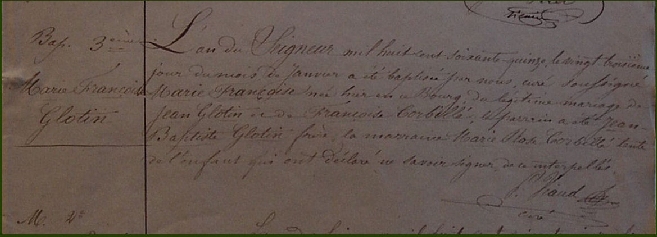 Vicaire
Bap. 3ème
Marie Françoise
Glotin
L'an du Seigneur mil huit cent soixante-quinze le vingt troisième
jour du mois de Janvier a été baptisée par nous, curé soussigné
Marie Françoise née hier en ce Bourg du légitime mariage de
Jean Glotin et de Françoise Corbillé, le parrain a été Jean-
Baptiste Glotin frère, la marraine Marie Corbillé tante
de l'enfant qui ont déclaré ne savoir signer de ce interpellés
curé
M. 4e